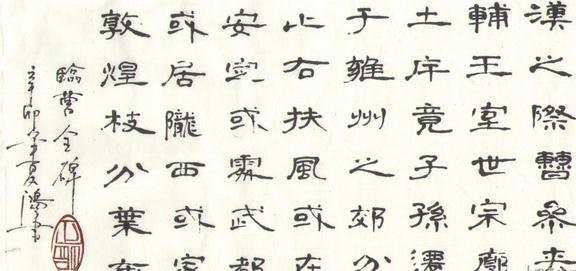 漢之際曹參夾
輔王室世宗廓
土斥竟子孫遷
于雍州之郊分
止右扶風或在
安定或處武都
或居隴西或家
敦煌枝分葉布
臨曹全碑
辛卯年夏